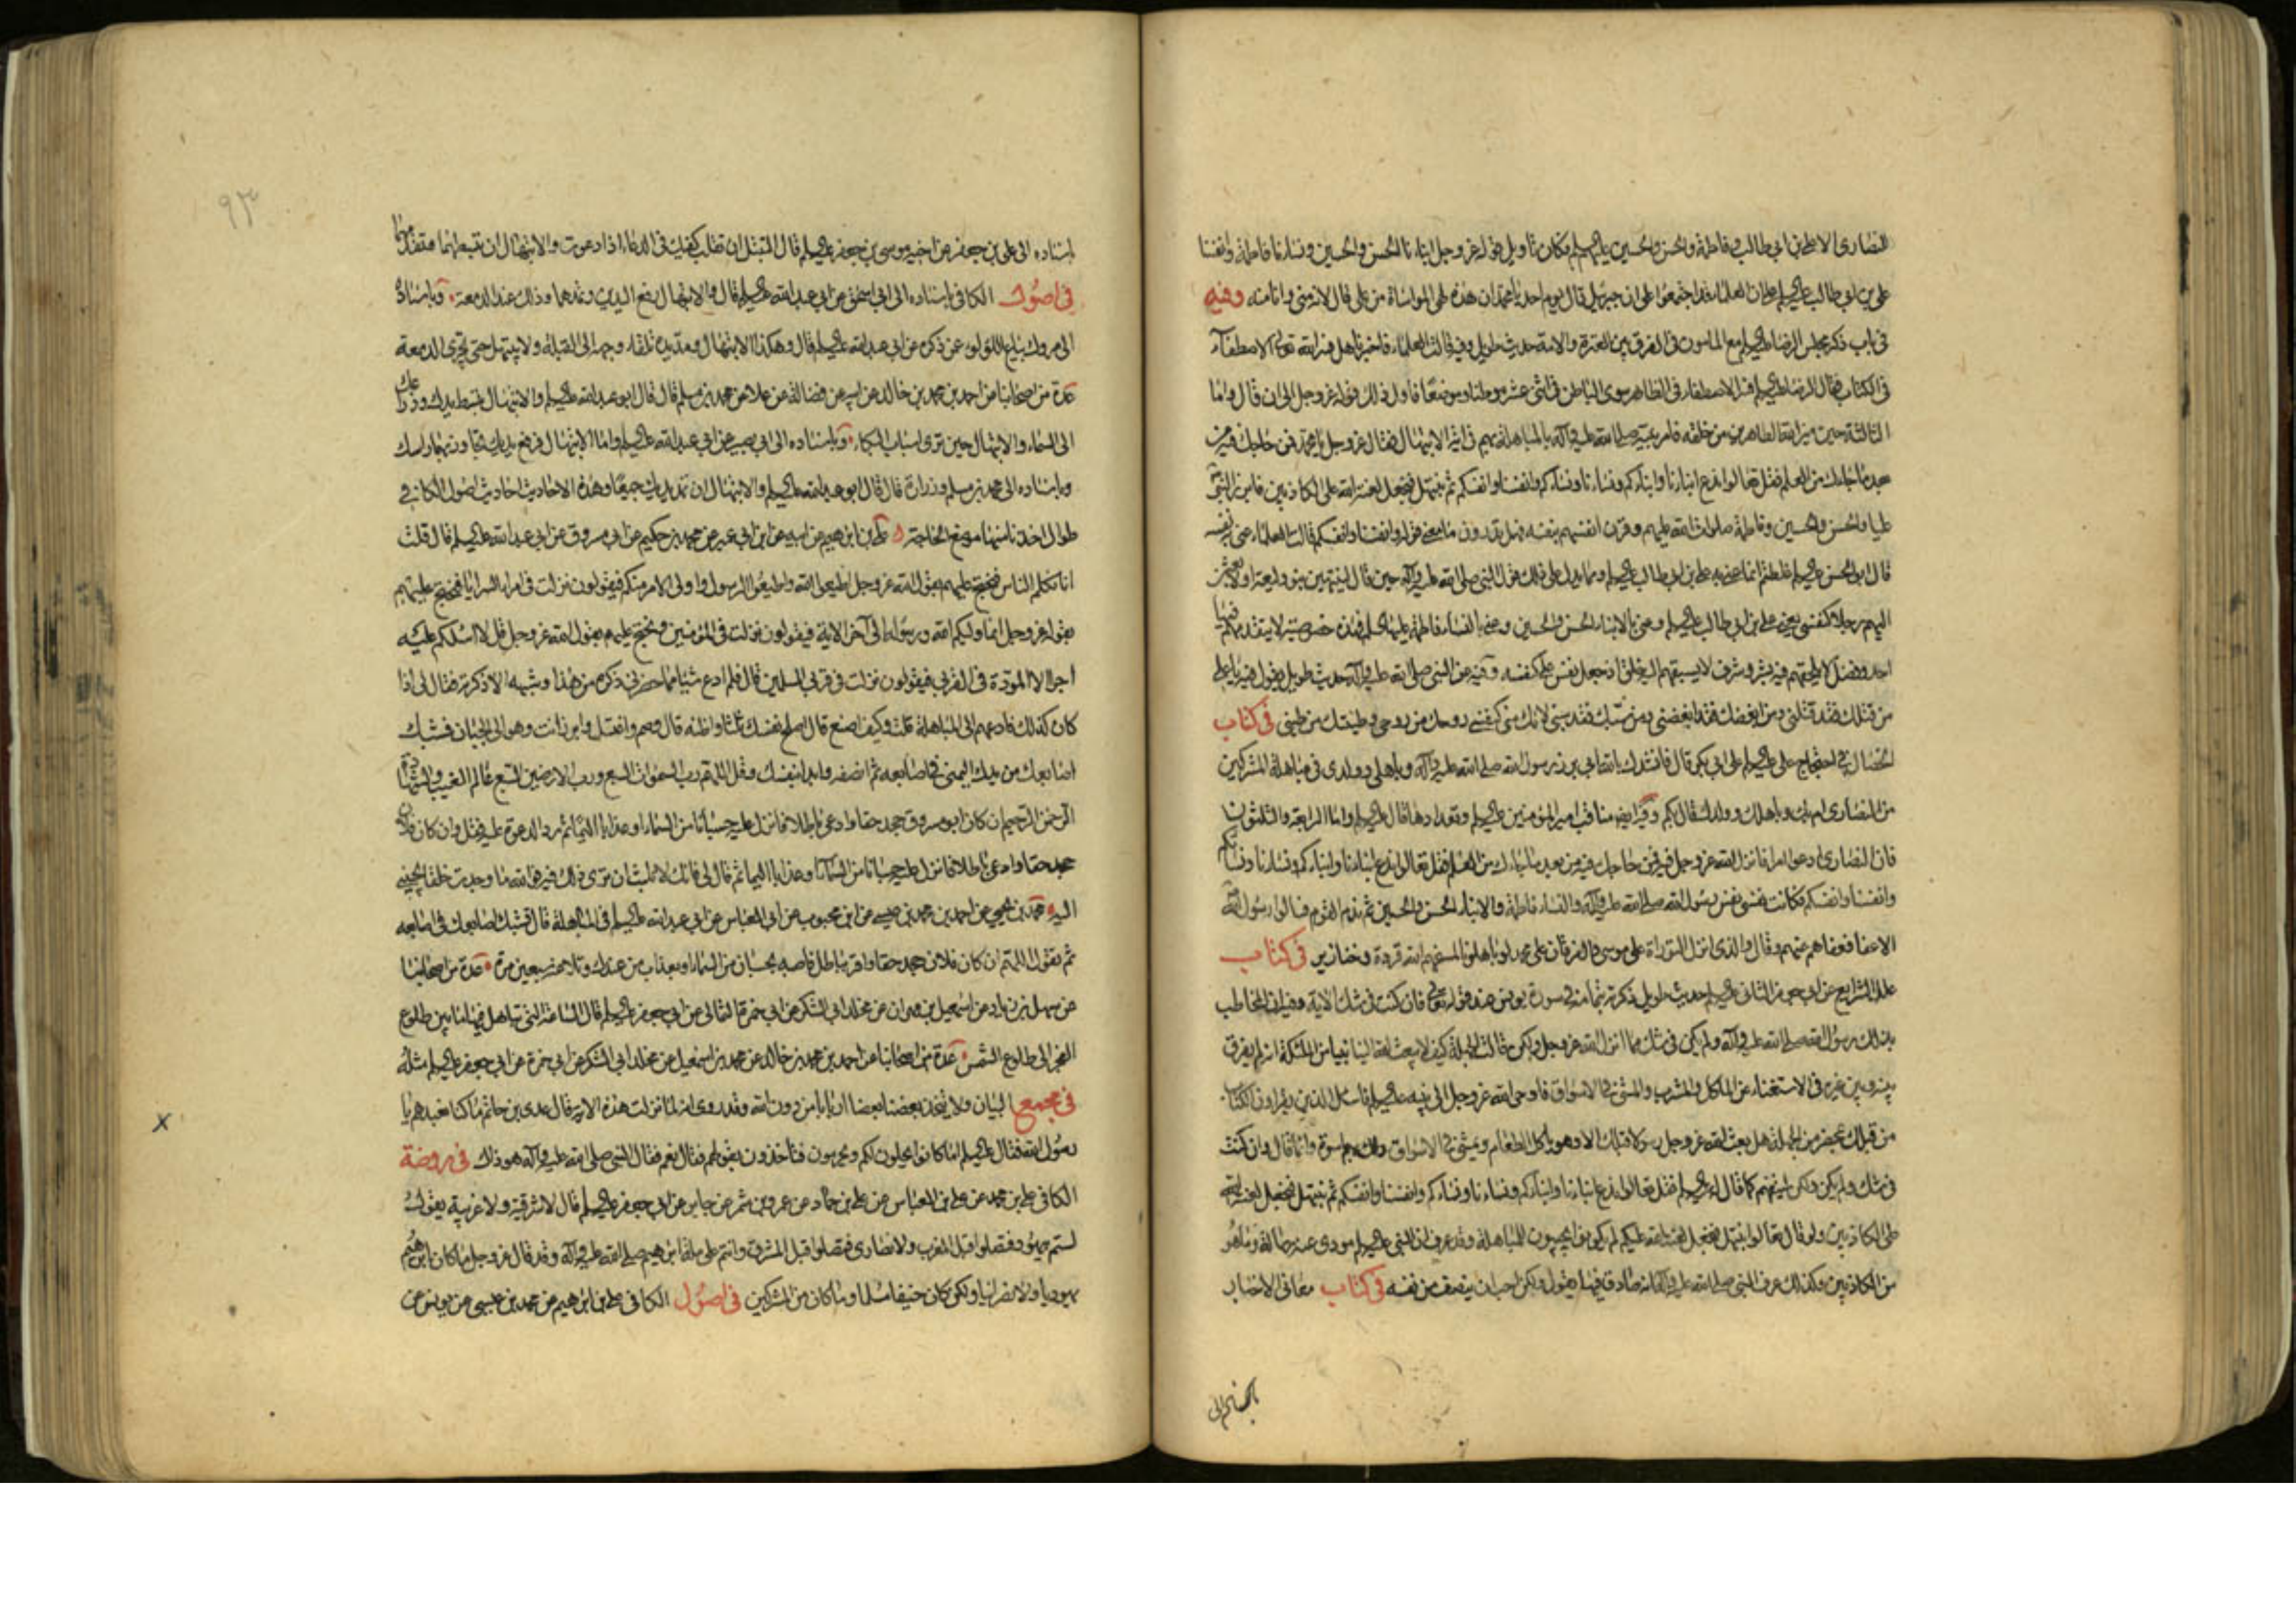 النصارى الا علي بن ابي طالب وفاطمة والحسن والحسين عليهم السلم فكان تاويل قوله عز وجل ابناءنا الحسن والحسين ونساءنا فاطمة وانفسنا
علي بن ابي طالب عليه السلم على ان العلماء قد اجتمعوا على ان جبرئيل قال يوم احد يا محمد ان هذه لهي المواساة من علي قال لانه مني وانا منه وفيه
في باب ذكر مجلس الرضا عليه السلم مع المامون في الفرق بين العترة والامة حديث طويل وفيه قالت العلماء فاخبرنا هل فسر الله تعالى الاصطفاء
في الكتاب فقال الرضا عليه السلم فسر الاصطفاء في الظاهر سوى الباطن في اثنى عشر موطنا وموضعا فاول ذلك قوله عز وجل الى ان قال واما
الثالثة حين ميز الله الطاهرين من خلقه فامر نبيه صلى الله عليه وآله بالمباهلة بهم في اية الابتهال فقال عز وجل يا محمد فمن حاجك فيه من
بعد ما جاءك من العلم فقل تعالوا ندع ابناءنا وابناءكم ونساءنا ونساءكم وانفسنا وانفسكم ثم نبتهل فنجعل لعنة الله على الكاذبين فابرز النبي
عليا والحسن والحسين وفاطمة صلوات الله عليهم وقرن انفسهم بنفسه فهل تدرون ما معنى قوله وانفسنا وانفسكم قالت العلماء عنى به نفسه
قال ابو الحسن عليه السلم غلطتم انما عنى به علي بن ابي طالب عليه السلم ومما يدل على ذلك قول النبي صلى الله عليه وآله حين قال لينتهين بنو وليعة او لابعثن
اليهم رجلا كنفسي يعني علي بن ابي طالب عليه السلم وعنى بالابناء الحسن والحسين وعنى بالنساء فاطمة عليها السلم فهذه خصوصية لا يتقدمهم فيها
احد وفضل لا يلحقهم فيه بشر وشرف لا يسبقهم اليه خلق اذ جعل نفس علي كنفسه وفيه عن النبي صلى الله عليه وآله حديث طويل يقول فيه يا علي
من قتلك فقد قتلني ومن ابغضك فقد ابغضني ومن سبك فقد سبني لانك مني كنفسي روحك من روحي وطينتك من طينتي في كتاب
الخصال في احتجاج علي عليه السلم على ابي بكر قال فانشدك بالله ابي برز رسول الله صلى الله عليه وآله وباهلي وولدي في مباهلة المشركين
من النصارى ام بك وباهلك وولدك قال بكم وفيه ايضا مناقب امير المؤمنين عليه السلم وتعدادها قال عليه السلم واما الرابعة والثلثون
فان النصارى ادعوا امرا فانزل الله عز وجل فيه فمن حاجك فيه من بعد ما جاءك من العلم فقل تعالوا ندع ابناءنا وابناءكم ونساءنا ونساءكم
وانفسنا وانفسكم فكانت نفسي نفس رسول الله صلى الله عليه وآله والنساء فاطمة والابناء الحسن والحسين ثم ندم القوم فسالوا رسول الله
الاعفا فعفاهم عنهم وقال والذي انزل التوراة على موسى والفرقان على محمد لو باهلونا لمسخهم الله قردة وخنازير في كتاب
علل الشرايع عن ابي جعفر الثاني عليه السلم حديث طويل ذكرته بتمامه في سورة يونس عند قوله تعالى فان كنت في شك الآية وفيه ان المخاطب
بذلك رسول الله صلى الله عليه وآله ولم يكن في شك مما انزل الله عز وجل ولكن قالت الجهلة كيف لا يبعث الله الينا نبيا من الملئكة انه لم يفرق
بينه وبين غيره في الاستغناء عن الماكل والمشرب والمشي في الاسواق فاوحى الله عز وجل الى نبيه عليه السلم فاسأل الذين يقراون الكتاب
من قبلك بمحضر من الجهلة هل يبعث الله عز وجل رسولا قبلك الا وهو ياكل الطعام ويمشي في الاسواق ولك بهم اسوة وانما قال وان كنت
في شك ولم يكن ولكن ليتبعهم كما قال له عليه السلم فقل تعالوا ندع ابناءنا وابناءكم ونساءنا ونساءكم وانفسنا وانفسكم ثم نبتهل فنجعل لعنة الله
على الكاذبين ولو قال تعالوا نبتهل فنجعل لعنة الله عليكم لم يكونوا يجيبون للمباهلة وقد عرف ان النبي عليه السلم مودى عنه رسالته وما هو
من الكاذبين وكذلك عرف النبي صلى الله عليه وآله انه صادق فيما يقول ولكن احب ان ينصف من نفسه في كتاب معاني الاخبار
٩٣
اسناده الى علي بن جعفر عن اخيه موسى بن جعفر عليه السلم قال التبتل ان تقلب كفيك في الدعاء اذا دعوت والابتهال ان تبسطهما
في اصول الكافي باسناده الى ابي اسحق عن ابي عبد الله عليه السلم قال والابتهال رفع اليدين وتمدهما وذلك عند الدمعة وباسناده
الى مروك بياع اللؤلؤ عمن ذكره عن ابي عبد الله عليه السلم قال وهكذا الابتهال ومد يديه تلقاء وجهه الى القبلة ولا يبتهل حتى تجري الدمعة
عدة من اصحابنا عن احمد بن محمد بن خالد عن ابيه عن فضالة عن علا عن محمد بن مسلم قال قال ابو عبد الله عليه السلم والابتهال تبسط يدك وذراعك
الى السماء والابتهال حين ترى اسباب البكاء وباسناده الى ابي بصير عن ابي عبد الله عليه السلم واما الابتهال فرفع يديك تجاوز بهما راسك
وباسناده الى محمد بن مسلم وزرارة قال قال ابو عبد الله عليه السلم والابتهال ان تمد يديك جميعا وهذه الاحاديث احاديث اصول الكافي
طوال اخذنا منها موضع الحاجة علي بن ابراهيم عن ابيه عن ابن ابي عمير عن محمد بن حكيم عن ابي مسروق عن ابي عبد الله عليه السلم قال قلت
انا نكلم الناس فنحتج عليهم بقول الله عز وجل اطيعوا الله واطيعوا الرسول واولى الامر منكم فيقولون نزلت في امراء السرايا فنحتج عليهم
بقوله عز وجل انما وليكم الله ورسوله الى آخر الاية فيقولون نزلت في المؤمنين ونحتج عليهم بقول الله عز وجل قل لا اسئلكم عليه
اجرا الا المودة في القربى فيقولون نزلت في قربى المسلمين قال فلم ادع شيئا مما حضرني ذكره من هذا وشبهه الا ذكرته فقال لي اذا
كان كذلك فادعهم الى المباهلة قلت وكيف اصنع قال اصلح نفسك ثلثا واظنه قال وصم واغتسل وابرز انت وهو الى الجبان فشبك
اصابعك من يدك اليمنى في اصابعه ثم انصفه وابدا بنفسك وقل اللهم رب السموات السبع ورب الارضين السبع عالم الغيب والشهادة
الرحمن الرحيم ان كان ابو مسروق جحد حقا وادعى باطلا فانزل عليه حسبانا من السماء او عذابا اليما ثم رد الدعوة عليه فقل وان كان فلان
جحد حقا وادعى باطلا فانزل عليه حسبانا من السماء او عذابا اليما ثم قال لي فانك لا تلبث ان ترى ذلك فيه فوالله ما وجدت خلقا يجيبني
اليه محمد بن يحيى عن احمد بن محمد بن عيسى عن ابن محبوب عن ابي العباس عن ابي عبد الله عليه السلم في المباهلة قال تشبك اصابعك في اصابعه
ثم تقول اللهم ان كان فلان جحد حقا واقر بباطل فاصبه بحسبان من السماء او بعذاب من عندك وتلاعنه سبعين مرة عدة من اصحابنا
عن سهل بن زياد عن اسمعيل بن مهران عن مخلد ابي الشكر عن ابي حمزة الثمالي عن ابي جعفر عليه السلم قال الساعة التي تباهل فيها ما بين طلوع
الفجر الى طلوع الشمس عدة من اصحابنا عن احمد بن محمد بن خالد عن محمد بن اسمعيل عن مخلد ابي الشكر عن ابي حمزة عن ابي جعفر عليه السلم مثله
في مجمع البيان ولا يتخذ بعضنا بعضا اربابا من دون الله وقد روى انه لما نزلت هذه الاية قال عدي بن حاتم ما كنا نعبدهم يا
رسول الله فقال عليه السلم اما كانوا يحلون لكم ويحرمون فتأخذون بقولهم فقال نعم فقال النبي صلى الله عليه وآله هو ذاك في روضة
الكافي علي بن محمد عن علي بن العباس عن علي بن حماد عن عمرو بن شمر عن جابر عن ابي جعفر عليه السلم قال لا شرقية ولا غربية يقول
لستم بيهود فتصلوا قبل المغرب ولا نصارى فتصلوا قبل المشرق وانتم على ملة ابراهيم صلى الله عليه وآله وقد قال عز وجل ما كان ابراهيم
يهوديا ولا نصرانيا ولكن كان حنيفا مسلما وما كان من المشركين في اصول الكافي علي بن ابراهيم عن محمد بن عيسى عن يونس عن